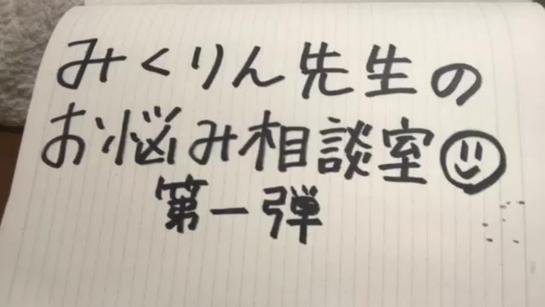 みくりん先生の
お悩み相談室
第一弾